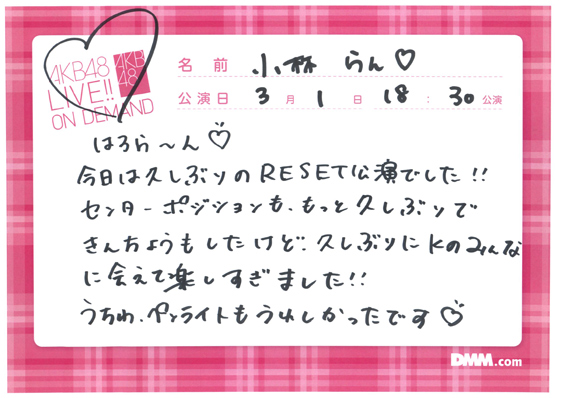 AKB48
LIVE!!
ON DEMAND
AKB
48
名前 小林 らん♡
公演日 3月1日 18:30公演
はろら〜ん♡
今日は久しぶりのRESET公演でした!!
センターポジションも、もっと久しぶりで
きんちょうもしたけど、久しぶりにKのみんな
に会えて楽しすぎました!!
うちわ、ペンライトもうれしかったです♡
DMM.com